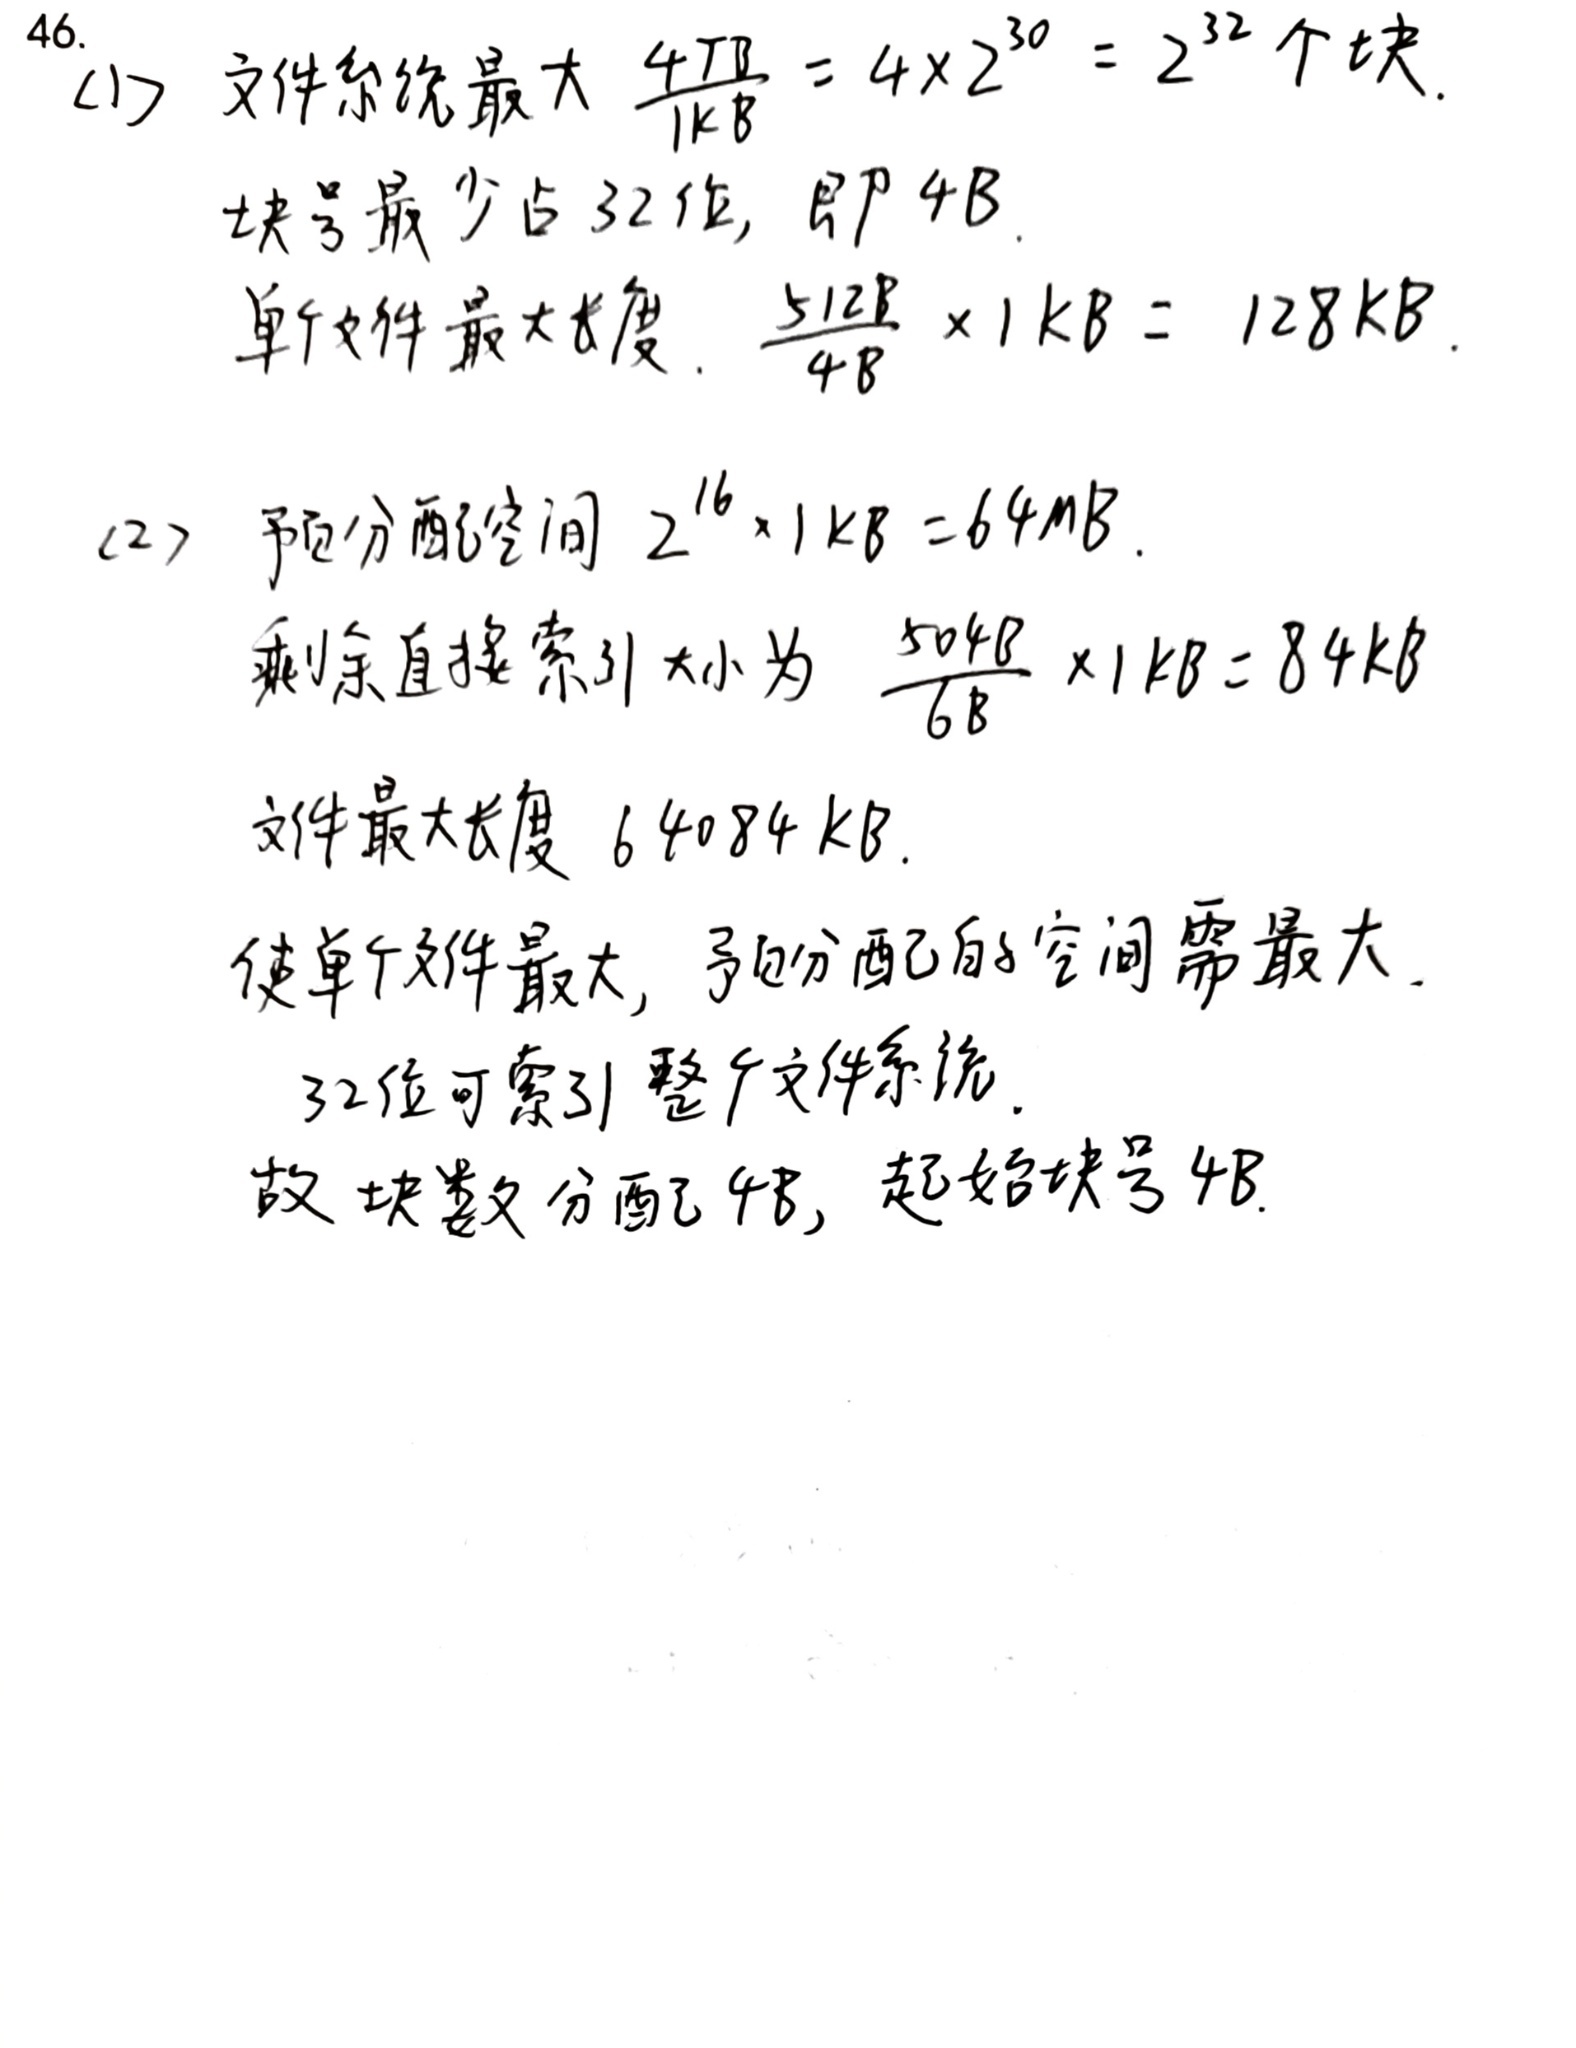 46.
(1) 文件系统最大 4TB/1KB = 4×2^30 = 2^32 个块.
块号最少占32位, 即 4B.
单个文件最大长度. 512B/4B ×1KB = 128KB.
(2) 预分配空间 2^16×1KB=64MB.
剩余直接索引大小为 504B/6B ×1KB=84KB
文件最大长度 64084KB.
使单个文件最大, 预分配的空间需最大.
32位可索引整个文件系统.
故块数分配4B, 起始块号4B.